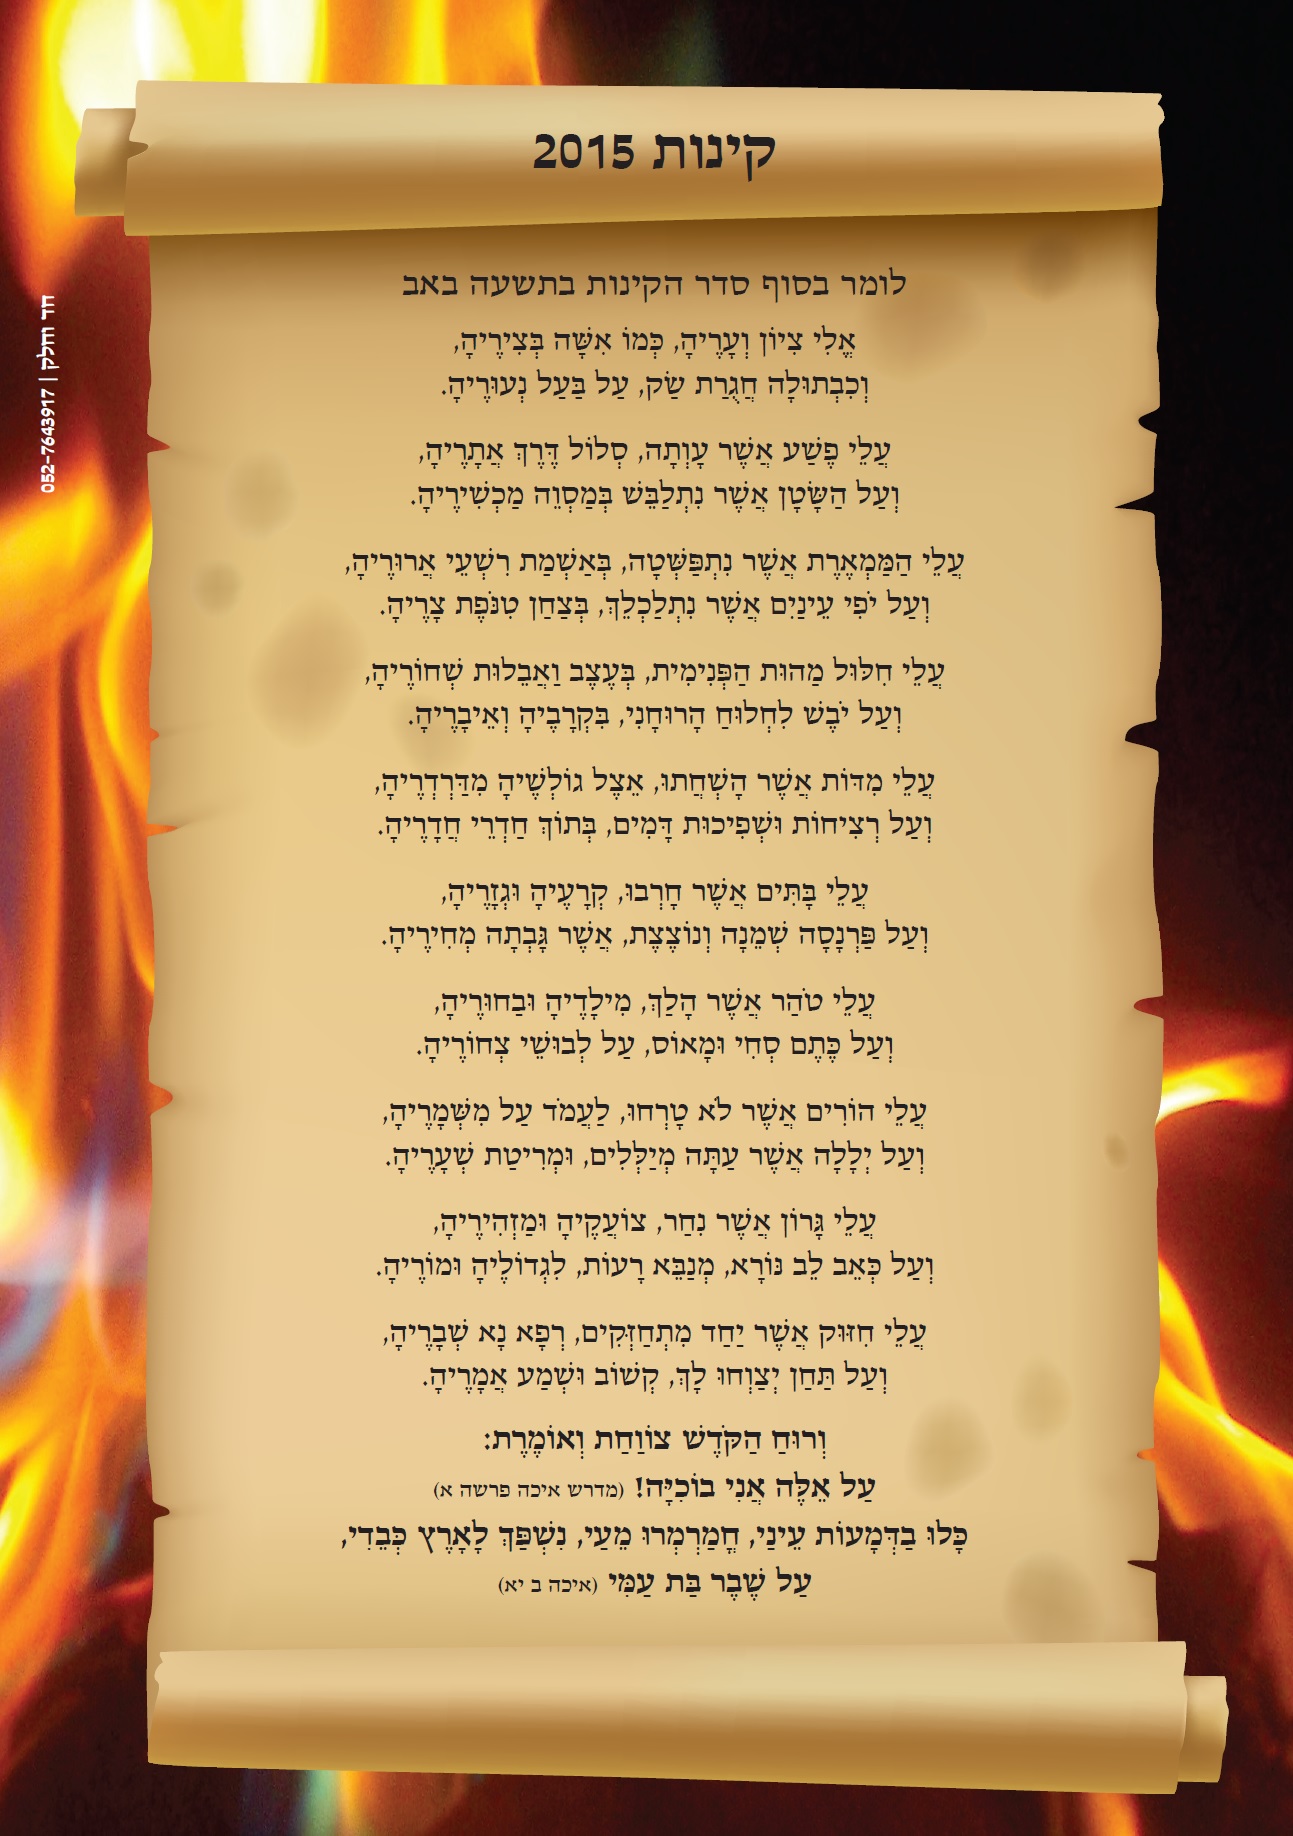 קינות 2015
לומר בסוף סדר הקינות בתשעה באב
אֱלִי צִיוֹן וְעָרֶיהָ, כְּמוֹ אִשָּׁה בְּצִירֶיהָ,
וְכִבְתוּלָה חֲגֻרַת שַׂק, עַל בַּעַל נְעוּרֶיהָ.
עֲלֵי פֶּשַׁע אֲשֶׁר עָוְתָה, סְלוֹל דֶּרֶךְ אֲתָרֶיהָ,
וְעַל הַשָּׂטָן אֲשֶׁר נִתְלַבֵּשׁ בְּמַסְוֵה מַכְשִׁירֶיהָ.
עֲלֵי הַמַּמְאֶרֶת אֲשֶׁר נִתְפַּשְּׁטָה, בְּאַשְׁמַת רִשְׁעֵי אֲרוּרֶיהָ,
וְעַל יֹפִי עֵינַיִם אֲשֶׁר נִתְלַכְלֵךְ, בְּצַחַן טִנֹּפֶת צָרֶיהָ.
עֲלֵי חִלּוּל מַהוּת הַפְּנִימִית, בְּעֶצֶב וַאֲבֵלוּת שְׁחוֹרֶיהָ,
וְעַל יֹבֶשׁ לִחְלוּחַ הָרוּחָנִי, בִּקְרָבֶיהָ וְאֵיבָרֶיהָ.
עֲלֵי מִדּוֹת אֲשֶׁר הָשְׁחֲתוּ, אֵצֶל גוֹלְשֶׁיהָ מִדַּרְדְרֶיהָ,
וְעַל רְצִיחוֹת וּשְׁפִיכוּת דָּמִים, בְּתוֹךְ חַדְרֵי חֲדָרֶיהָ.
עֲלֵי בָּתִּים אֲשֶׁר חָרְבוּ, קְרָעֶיהָ וּגְזָרֶיהָ,
וְעַל פַּרְנָסָה שְׁמֵנָה וְנוֹצֶצֶת, אֲשֶׁר גָּבְתָה מְחִירֶיהָ.
עֲלֵי טֹהַר אֲשֶׁר הָלַךְ, מִילָדֶיהָ וּבַחוּרֶיהָ,
וְעַל כֶּתֶם סְחִי וּמָאוֹס, עַל לְבוּשֵׁי צְחוֹרֶיהָ.
עֲלֵי הוֹרִים אֲשֶׁר לֹא טָרְחוּ, לַעֲמֹד עַל מִשְּׁמָרֶיהָ,
וְעַל יְלָלָה אֲשֶׁר עַתָּה מְיַלְּלִים, וּמְרִיטַת שְׁעָרֶיהָ.
עֲלֵי גָּרוֹן אֲשֶׁר נִחַר, צוֹעֲקֶיהָ וּמַזְהִירֶיהָ,
וְעַל כְּאֵב לֵב נּוֹרָא, מְנַבֵּא רָעוֹת, לִגְדוֹלֶיהָ וּמוֹרֶיהָ.
עֲלֵי חִזּוּק אֲשֶׁר יַחַד מִתְחַזְּקִים, רְפָא נָא שְׁבָרֶיהָ,
וְעַל תַּחַן יְצַוְחוּ לָךְ, קְשׁוֹב וּשְׁמַע אֲמָרֶיהָ.
וְרוּחַ הַקֹּדֶשׁ צוֹוַחַת וְאוֹמֶרֶת:
עַל אֵלֶּה אֲנִי בוֹכִיָּה! (מדרש איכה פרשה א)
כָּלוּ בַדְּמָעוֹת עֵינַי, חֳמַרְמְרוּ מֵעַי, נִשְׁפַּךְ לָאָרֶץ כְּבֵדִי,
עַל שֶׁבֶר בַּת עַמִּי (איכה ב יא)
חד וחלק | 052-7643917